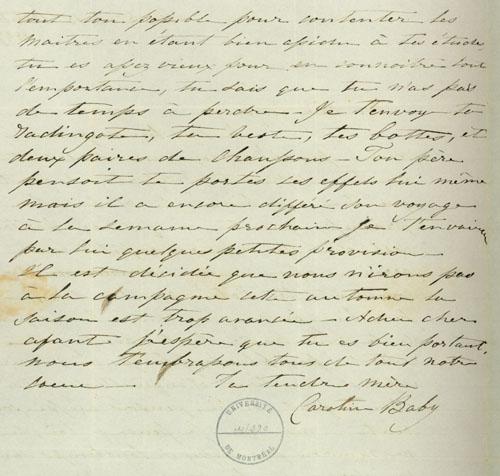 tout ton possible pour contenter tes
maitres en étant bien assidu à tes étude
tu es assez vieux pour en connoitre tout
l'importance, tu sais que tu n'as pas
de temps à perdre. Je t'envoy ta
radingote, ta veste, tes bottes, et
deux paires de chaussons – Ton père
pensoit te porter ces effets lui même
mais il a encore différé son voyage
à la semaine prochain je t'envairai
par lui quelques petites provision –
Il est décidée que nous n'irons pas
à la campagne cet automne la
saison est trop avancée – Adieu cher
enfant j'espère que tu es bien portant,
nous t'embrassons tous de tout notre
coeur – Ta tendre mère
Caroline Baby
UNIVERSITÉ
DE MONTRÉAL